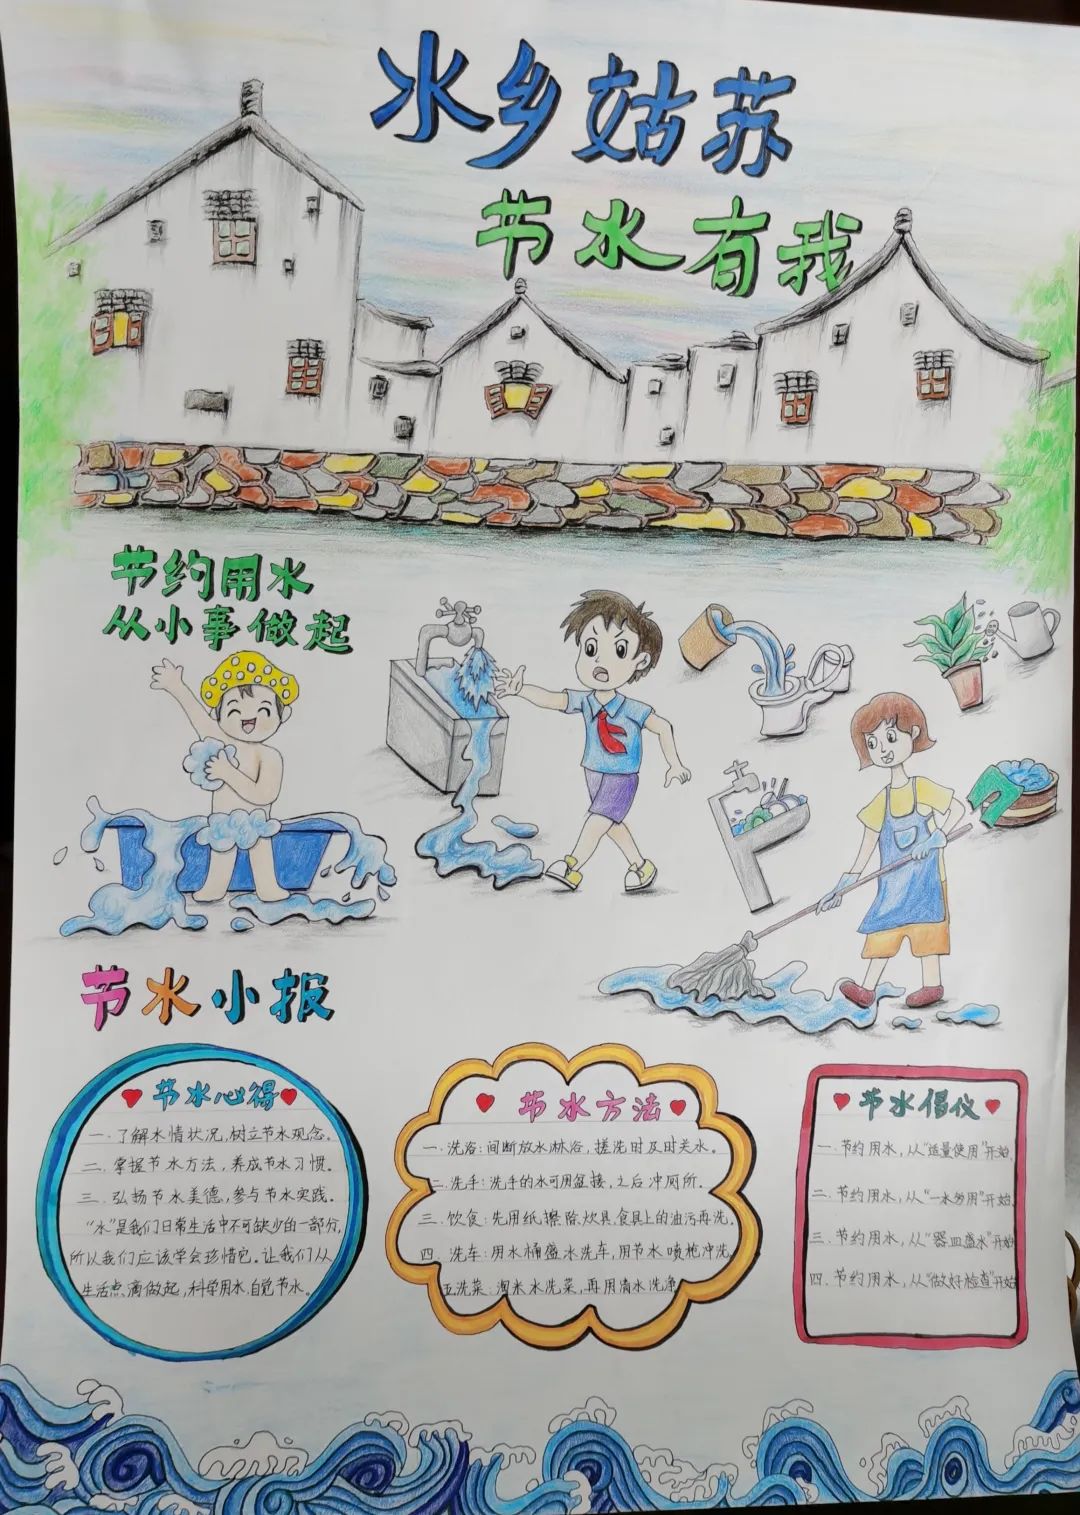 水乡姑苏
节水有我
节约用水
从小事做起
节水小报
节水心得
一.了解水情状况,树立节水观念.
二.掌握节水方法,养成节水习惯.
三.弘扬节水美德,参与节水实践.
"水"是我们日常生活中不可缺少的一部分,
所以我们应该学会珍惜它.让我们从
生活点滴做起,科学用水,自觉节水.
节水方法
一.洗浴:间断放水淋浴,搓洗时及时关水.
二.洗手:洗手的水可用盆接,之后冲厕所.
三.饮食:先用纸擦除炊具.食具上的油污再洗.
四.洗车:用水桶盛水洗车,用节水喷枪冲洗
五.洗菜:淘米水洗菜,再用清水洗净
节水倡仪
一.节约用水,从"适量使用"开始.
二.节约用水,从"一水多用"开始.
三.节约用水,从"器皿盛水"开始
四.节约用水,从"做好检查"开始